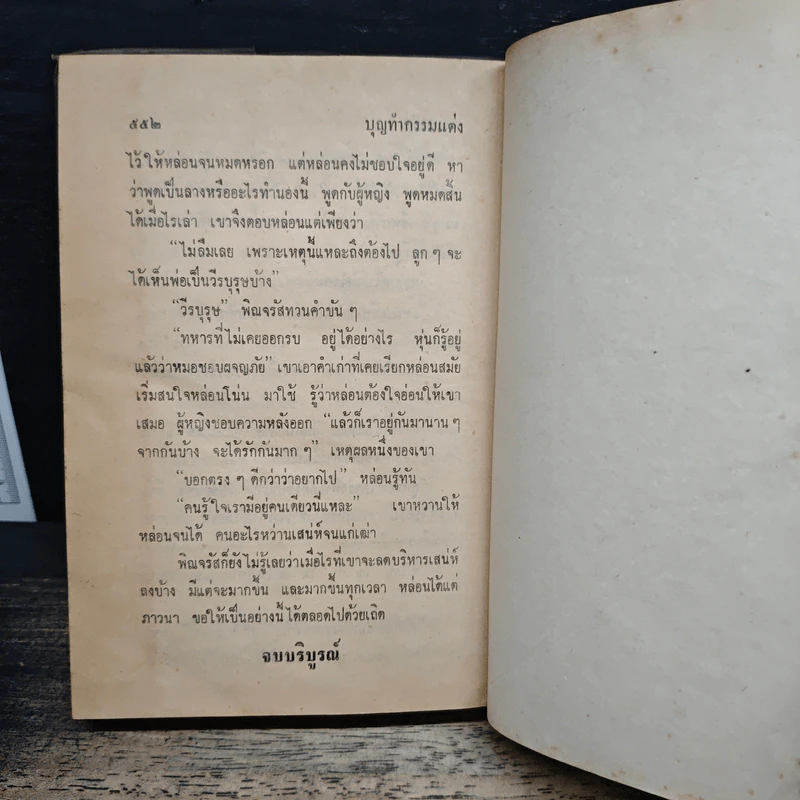 ๕๕๒ บุญทำกรรมแต่ง
ไว้ให้หล่อนจนหมดหรอก แต่หล่อนคงไม่ชอบใจอยู่ดี หา
ว่าพูดเป็นลางหรืออะไรทำนองนี้ พูดกับผู้หญิง พูดหมดสิ้น
ได้เมื่อไรเล่า เขาจึงตอบหล่อนแต่เพียงว่า
“ไม่ลืมเลย เพราะเหตุนี้แหละถึงต้องไป ลูก ๆ จะ
ได้เห็นพ่อเป็นวีรบุรุษบ้าง”
“วีรบุรุษ” พิณจรัสทวนคำขัน ๆ
“ทหารที่ไม่เคยออกรบ อยู่ได้อย่างไร หุ่นก็รู้อยู่
แล้วว่าหมอชอบผจญภัย” เขาเอาคำเก่าที่เคยเรียกหล่อนสมัย
เริ่มสนใจหล่อนโน่น มาใช้ รู้ว่าหล่อนต้องใจอ่อนให้เขา
เสมอ ผู้หญิงชอบความหลังออก “แล้วก็เราอยู่กันมานาน ๆ
จากกันบ้าง จะได้รักกันมาก ๆ” เหตุผลหนึ่งของเขา
“บอกตรง ๆ ดีกว่าว่าอยากไป” หล่อนรู้ทัน
“คนรู้ใจเรามีอยู่คนเดียวนี่แหละ” เขาหวานให้
หล่อนจนได้ คนอะไรหว่านเสน่ห์จนแก่เฒ่า
พิณจรัสก็ยังไม่รู้เลยว่าเมื่อไรที่เขาจะลดบริหารเสน่ห์
ลงบ้าง มีแต่จะมากขึ้น และมากขึ้นทุกเวลา หล่อนได้แต่
ภาวนา ขอให้เป็นอย่างนี้ได้ตลอดไปด้วยเถิด
จบบริบูรณ์